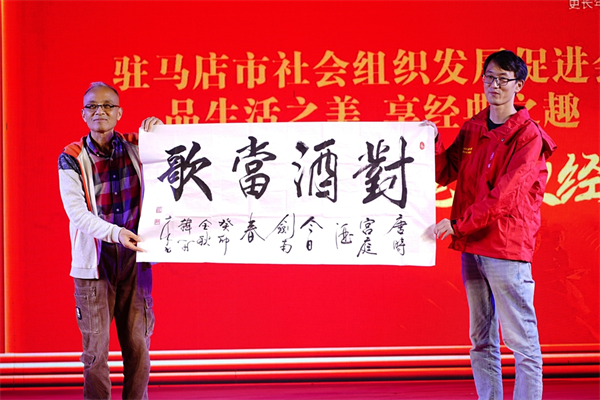 驻马店市社会组织发展促进会
品生活之美 享经典之趣
经
對酒當歌
唐時
宫庭
酒
今日
劍南
春
癸卯
金秋